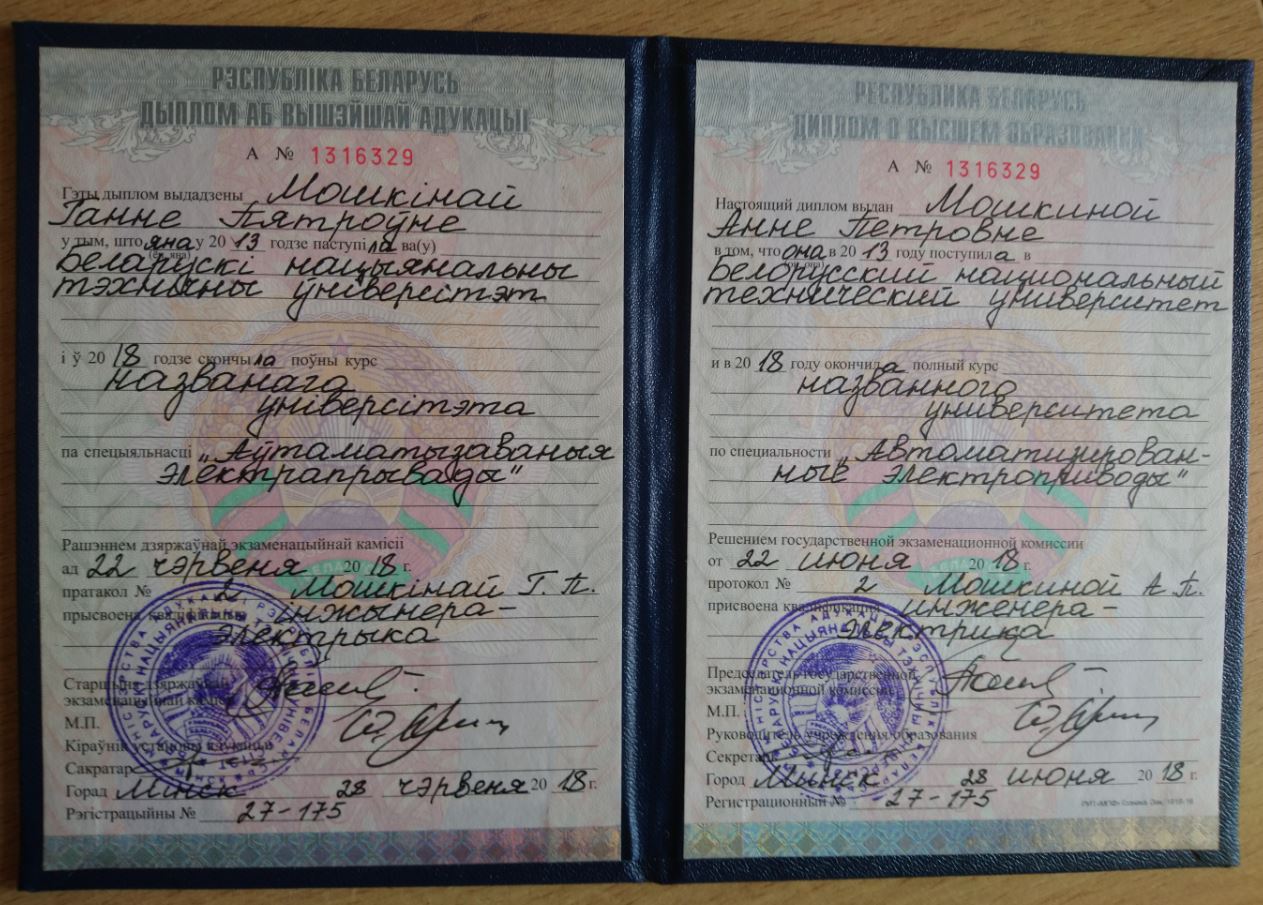 РЭСПУБЛІКА БЕЛАРУСЬ
ДЫПЛОМ АБ ВЫШЭЙШАЙ АДУКАЦЫІ
А № 1316329
Гэты дыплом выдадзены Мошкінай
Ганне Пятроўне
у тым, што яна у 2013 годзе паступіла ва(у)
Беларускі нацыянальны
тэхнічны ўніверсітэт
і ў 2018 годзе скончыла поўны курс
названага
ўніверсітэта
па спецыяльнасці „Аўтаматызаваныя
электрапрывады"
Рашэннем дзяржаўнай экзаменацыйнай камісіі
ад 22 чэрвеня 2018 г.
пратакол № 2 Мошкінай Г. П.
прысвоена кваліфікацыя інжынера-
электрыка
Старшыня дзяржаўнай
экзаменацыйнай камісіі
М.П.
Кіраўнік установы адукацыі
Сакратар
Горад Мінск 28 чэрвеня 2018 г.
Рэгістрацыйны № 27-175
РЕСПУБЛИКА БЕЛАРУСЬ
ДИПЛОМ О ВЫСШЕМ ОБРАЗОВАНИИ
А № 1316329
Настоящий диплом выдан Мошкиной
Анне Петровне
в том, что она в 2013 году поступила в
Белорусский национальный
технический университет
и в 2018 году окончила полный курс
названного
университета
по специальности „Автоматизирован-
ные электроприводы"
Решением государственной экзаменационной комиссии
от 22 июня 2018 г.
протокол № 2 Мошкиной А. П.
присвоена квалификация инженера-
электрика
Председатель государственной
экзаменационной комиссии
М.П.
Руководитель учреждения образования
Секретарь
Город Минск 28 июня 2018 г.
Регистрационный № 27-175